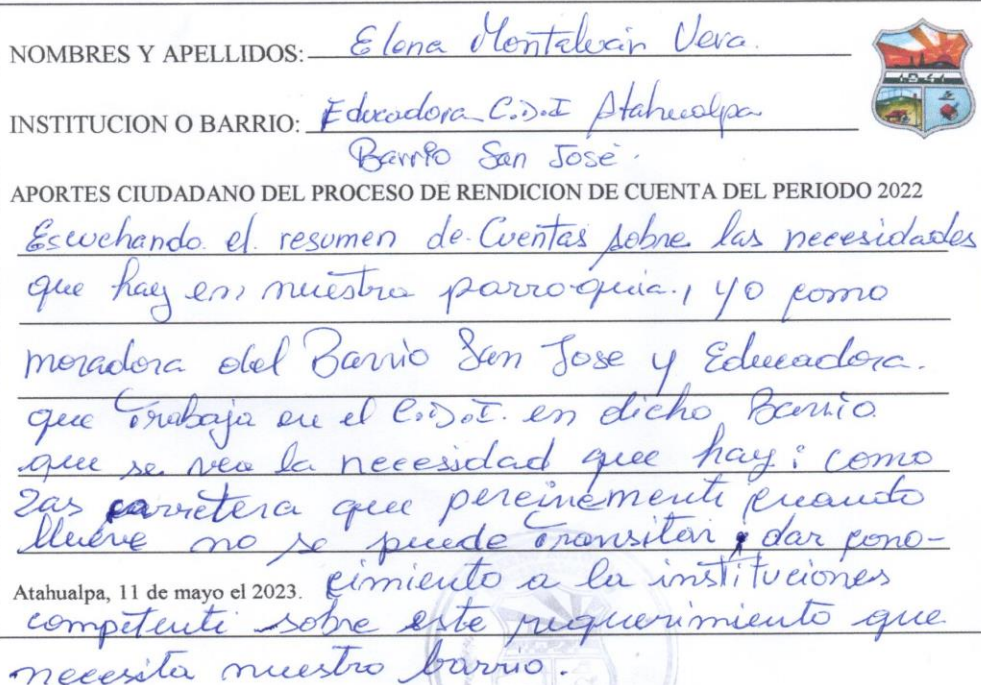 NOMBRES Y APELLIDOS: Elena Montalván Vera.
INSTITUCION O BARRIO: Educadora C.D.I Atahualpa
Barrio San José.
1941
APORTES CIUDADANO DEL PROCESO DE RENDICION DE CUENTA DEL PERIODO 2022
Escuchando el resumen de Cuentas sobre las necesidades
que hay en nuestra parroquia, yo como
moradora del Barrio San Jose y Educadora.
que Trabaja en el C.D.I. en dicho Barrio
que se vea la necesidad que hay: como
las carretera que pereinemente cuando
llueve no se puede Transitar, dar cono-
Atahualpa, 11 de mayo el 2023. cimiento a la instituciones
competente sobre este requerimiento que
necesita nuestro barrio.